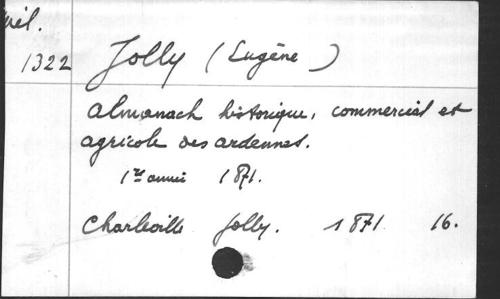 Mél.
1322
Jolly (Eugène)
Almanach historique, commercial et
agricole des ardennes.
1re année 1871.
Charleville Jolly. 1871 16.